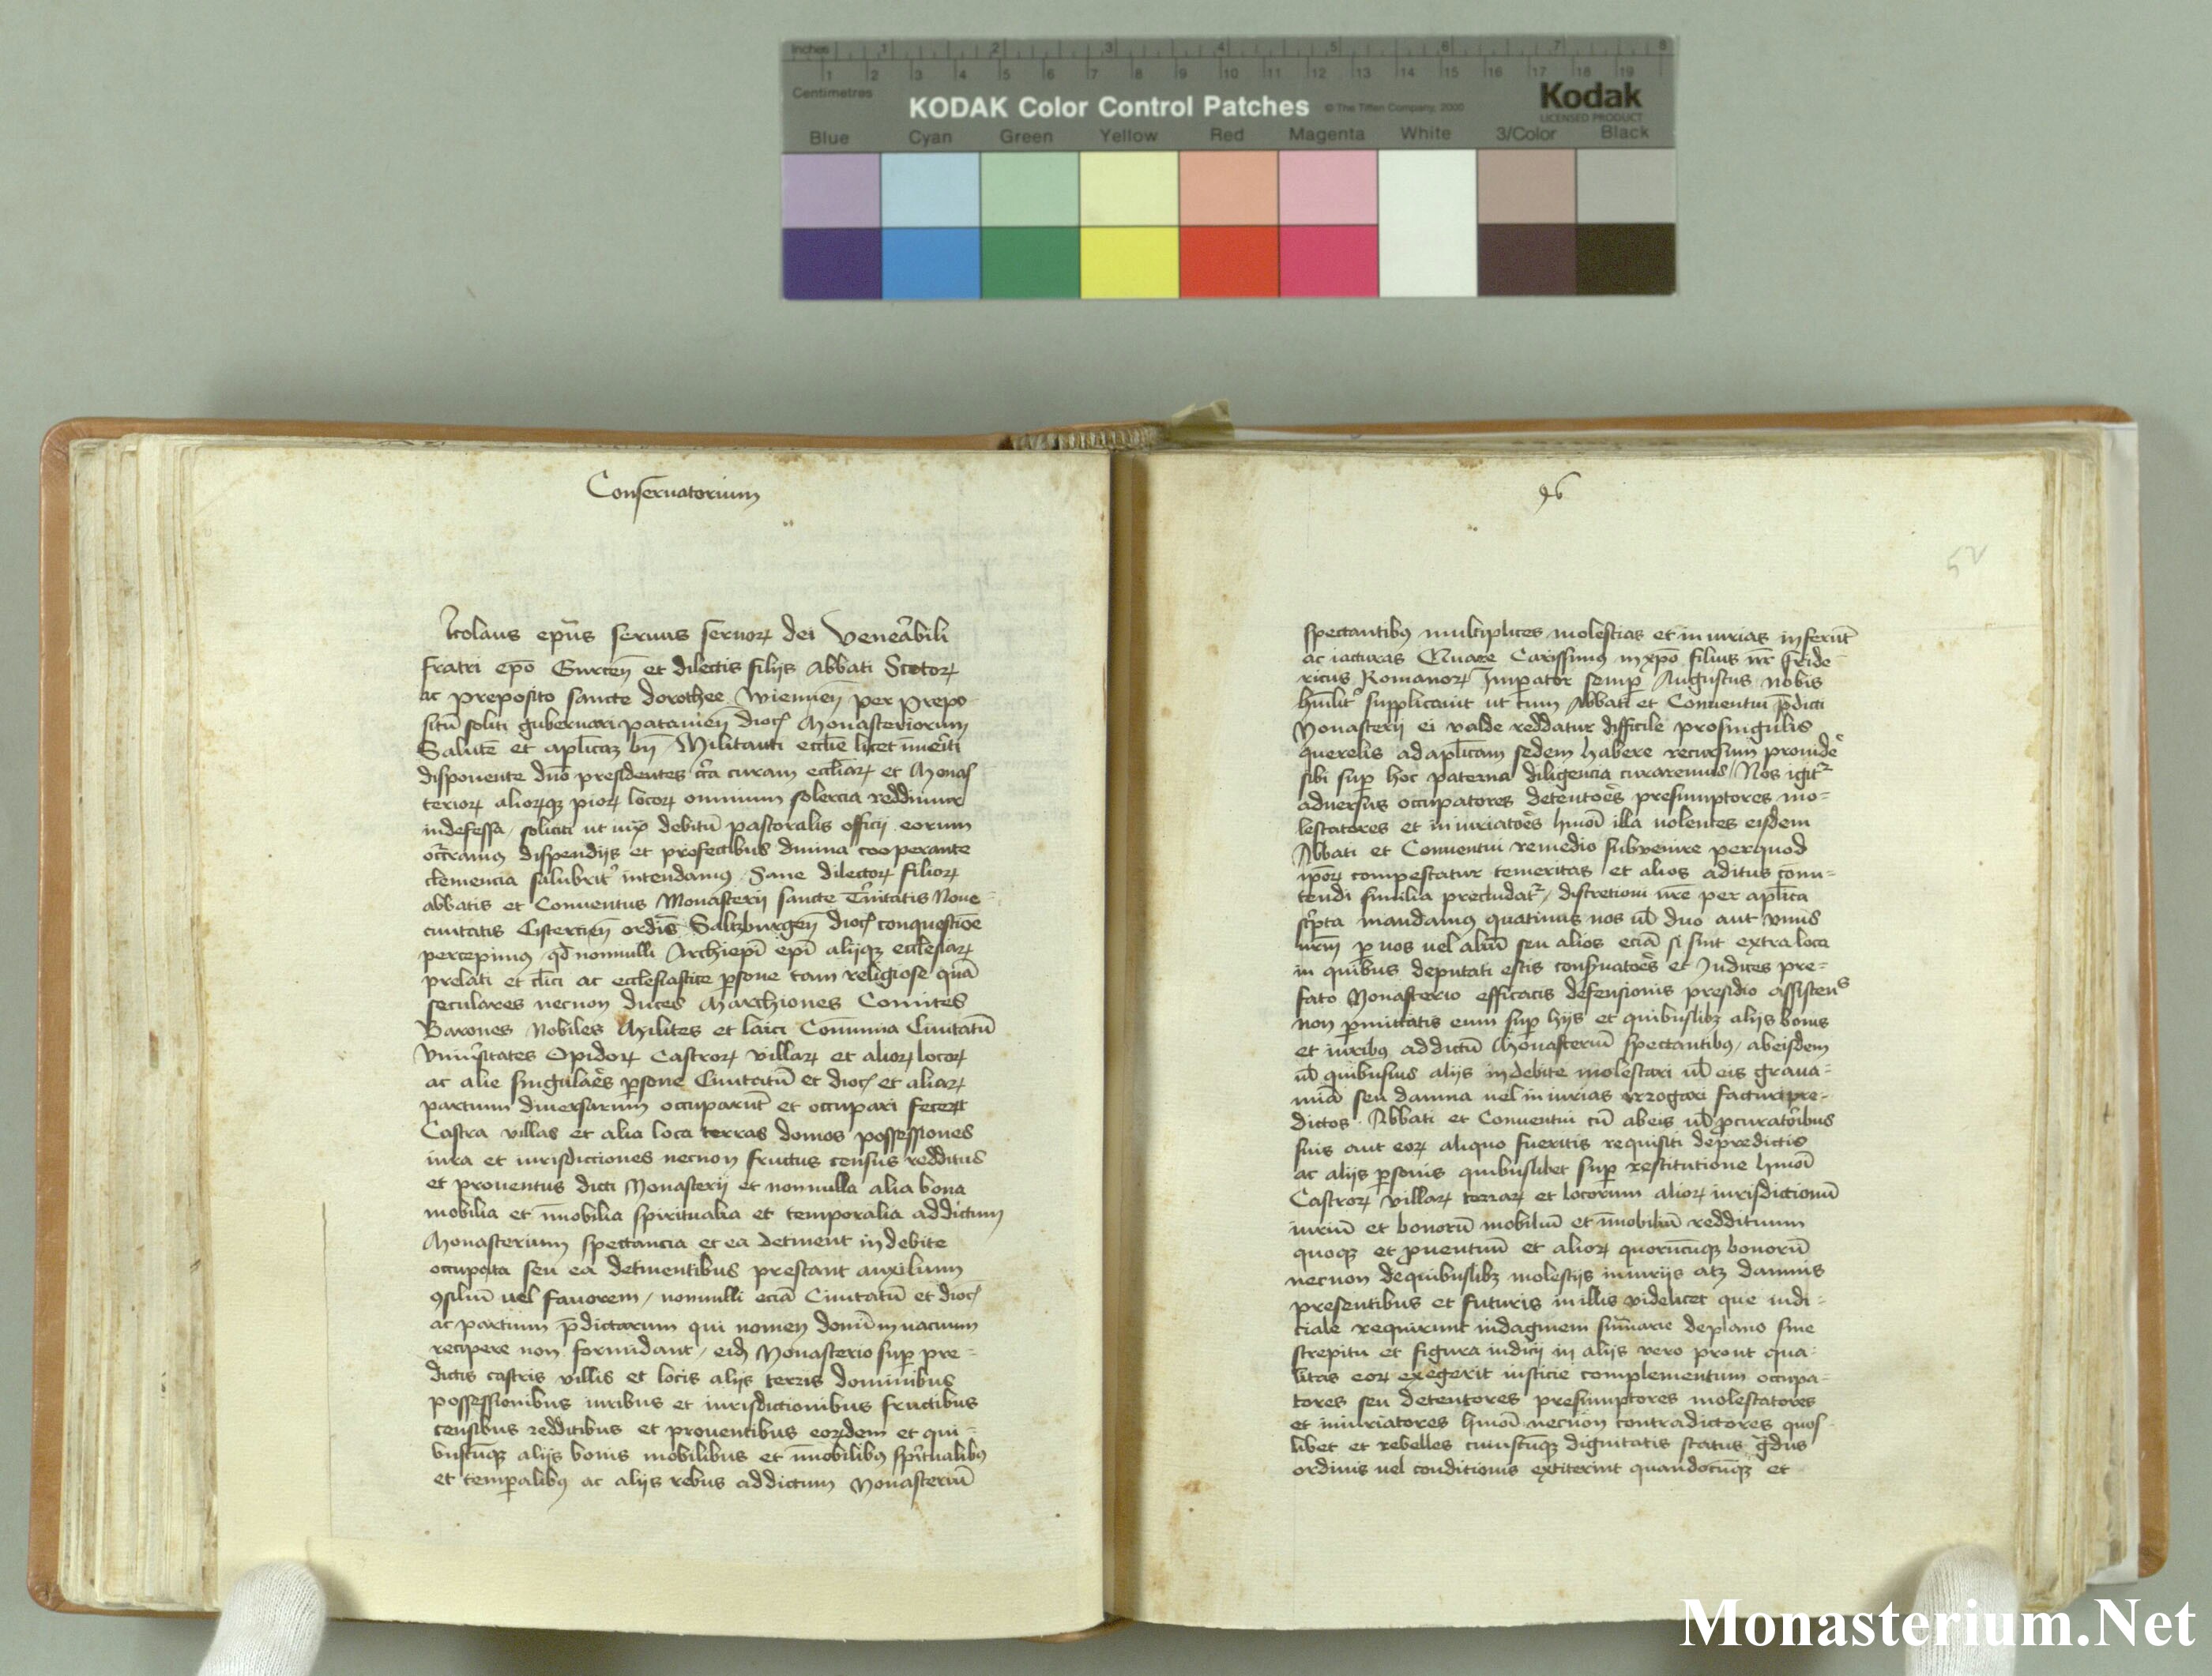 Inches 1 2 3 4 5 6 7 8
1 2 3 4 5 6 7 8 9 10 11 12 13 14 15 16 17 18 19
Centimetres
KODAK Color Control Patches © The Tiffen Company, 2000 Kodak
LICENSED PRODUCT
Blue Cyan Green Yellow Red Magenta White 3/Color Black
Conseruatorium
Nicolaus ep̄us seruus seruorꝝ dei Veneābili
fratri ep̄o Gurcen̄ et dilectis filijs Abbati Scotorꝝ
ac preposito sancte dorothee Wiennen̄ per Prepo
situ̅ soliti gubernari patauien̄ dioc̄ Monasteriorum
Salute̅ et apl̄icaꝫ bn̄ Militanti eccl̄ie licet im̄eriti
disponente dn̄o presidentes cīrca curam eccl̄iarꝝ et Monas
teriorꝝ aliorꝝqꝫ piorꝝ locorꝝ omnium solercia reddimur
indefessa / soliciti ut iuxᵃ debitu̅ pastoralis officij eorum
occ̄ramus dispendijs et profectibus diuina cooperante
clemencia salubrit᷑ intendamus Sane dilectorꝝ filiorꝝ
abbatis et Conuentus Monasterij sancte Trīnitatis Noue-
ciuitatis Cistercien̄ ordīs Saltzburgen̄ dioc̄ conquestio̅e
percepimus qd̄ nonnulli Archiep̄i ep̄i alijqꝫ ecclesiarꝝ
prelati et cl̄ici ac ecclesiastice ꝑsone tam religiose qua̅
seculares necnon duces Marchiones Comites
Barones Nobiles Milites et laici Co̅munia Ciuitatu̅
Vniu̅sitates Opidorꝝ Castrorꝝ villarꝝ et aliorꝝ locorꝝ
ac alie singulaēs ꝑsone Ciuitatu̅ et dioc̄ et aliarꝝ
partium diuersarum occuparu̅t et occupari fecerꝝt
Castra villas et alia loca terras domos possessiones
iura et iurisdictiones necnon fructus census redditus
et prouentus dicti Monasterij et nonnulla alia bona
mobilia et im̄obilia spiritualia et temporalia addictum
Monasterium spectancia et ea detinent indebite
occupata seu ea detinentibus prestant auxilium
ꝯsiliu̅ uel fauorem / nonnulli ecia̅ Ciuitatu̅ et dioc̄
ac partium p̄dictarum qui nomen domī in uacuum
recipere non formidant / eidꝫ Monasterio suꝑ pre-
dictis castris villis et locis alijs terris dominibus
possessionibus iuribus et iurisdictionibus fructibus
censibus redditibus et prouentibus eorꝝdem et qui-
buscu̅qꝫ alijs bonis mobilibus et im̄obilibus spīritualibus
et temꝑalibus ac alijs rebus addictum Monasteriu̅
96
52
spectantibus multiplices molestias et iniurias inferu̅t
ac iacturas Quare Carissimus in xp̄o filius nr̄ fride-
ricus Romanorꝝ Imꝑator semꝑ Augustus nobis
hu̅ilit᷑ supplicauit ut cum Abbati et Conuentui p̄dicti
Monasterij ei valde reddatur difficile prosingulis
querelis ad apl̄icam sedem habere recursum prouide᷑
sibi suꝑ hoc paterna diligencia curaremus / Nos igit᷑
aduersus occupatores detentoēs presumptores mo-
lestatores et iniuriatoēs hmōi illa uolentes eisdem
Abbati et Conuentui remedio subuenire perquod
ip̄orꝝ compescatur temeritas et alios aditus co̅mi-
tendi similia precludat᷑ / discretioni ur̄e per apl̄ica
scrīpta mandamus quatinus uos ul̄ duo aut vnus
ur̄m ꝑ uos uel aliu̅ seu alios ecia̅ si sint extra loca
in quibus deputati estis cons̄uatoēs et Judices pre-
fato Monasterio efficacis defensionis presidio assistens
non ꝑmittatis eum suꝑ hijs et quibuslibꝫ alijs bonis
et iuribus addictu̅ Monasteriu̅ spectantibus / abeisdem
ul̄ quibusuis alijs indebite molestari ul̄ eis graua-
mi̅a seu damna uel iniurias irrogari facturi pre-
dictos Abbati et Conuentui cu̅ abeis ul̄ ꝓcuratoribus
suis aut eorꝝ aliquo fueritis requisiti depredictis
ac alijs ꝑsonis quibuslibet suꝑ restitutione hmōi
Castrorꝝ villarꝝ terrarꝝ et locorum aliorꝝ iurisdictionu̅
iuriu̅ et bonoru̅ mobiliu̅ et im̄obiliu̅ reddituum
quoqꝫ et ꝓuentuu̅ et aliorꝝ quorucu̅qꝫ bonoru̅
necnon dequibuslibꝫ molestijs iniurijs atqꝫ damnis
presentibus et futuris in illis videlicet que iudi-
ciale requirunt indaginem su̅marie deplano sine
strepitu et figura iudicij in alijs vero prout qua-
litas eorꝝ exegerit iusticie complementum occupa-
tores seu detentores presumptores molestatores
et iniuriatores hmōi necnon contradictores quos-
libet et rebelles cuiuscu̅qꝫ dignitatis status gᵃdus
ordinis uel conditionis extiterint quandocu̅qꝫ et
Monasterium.Net